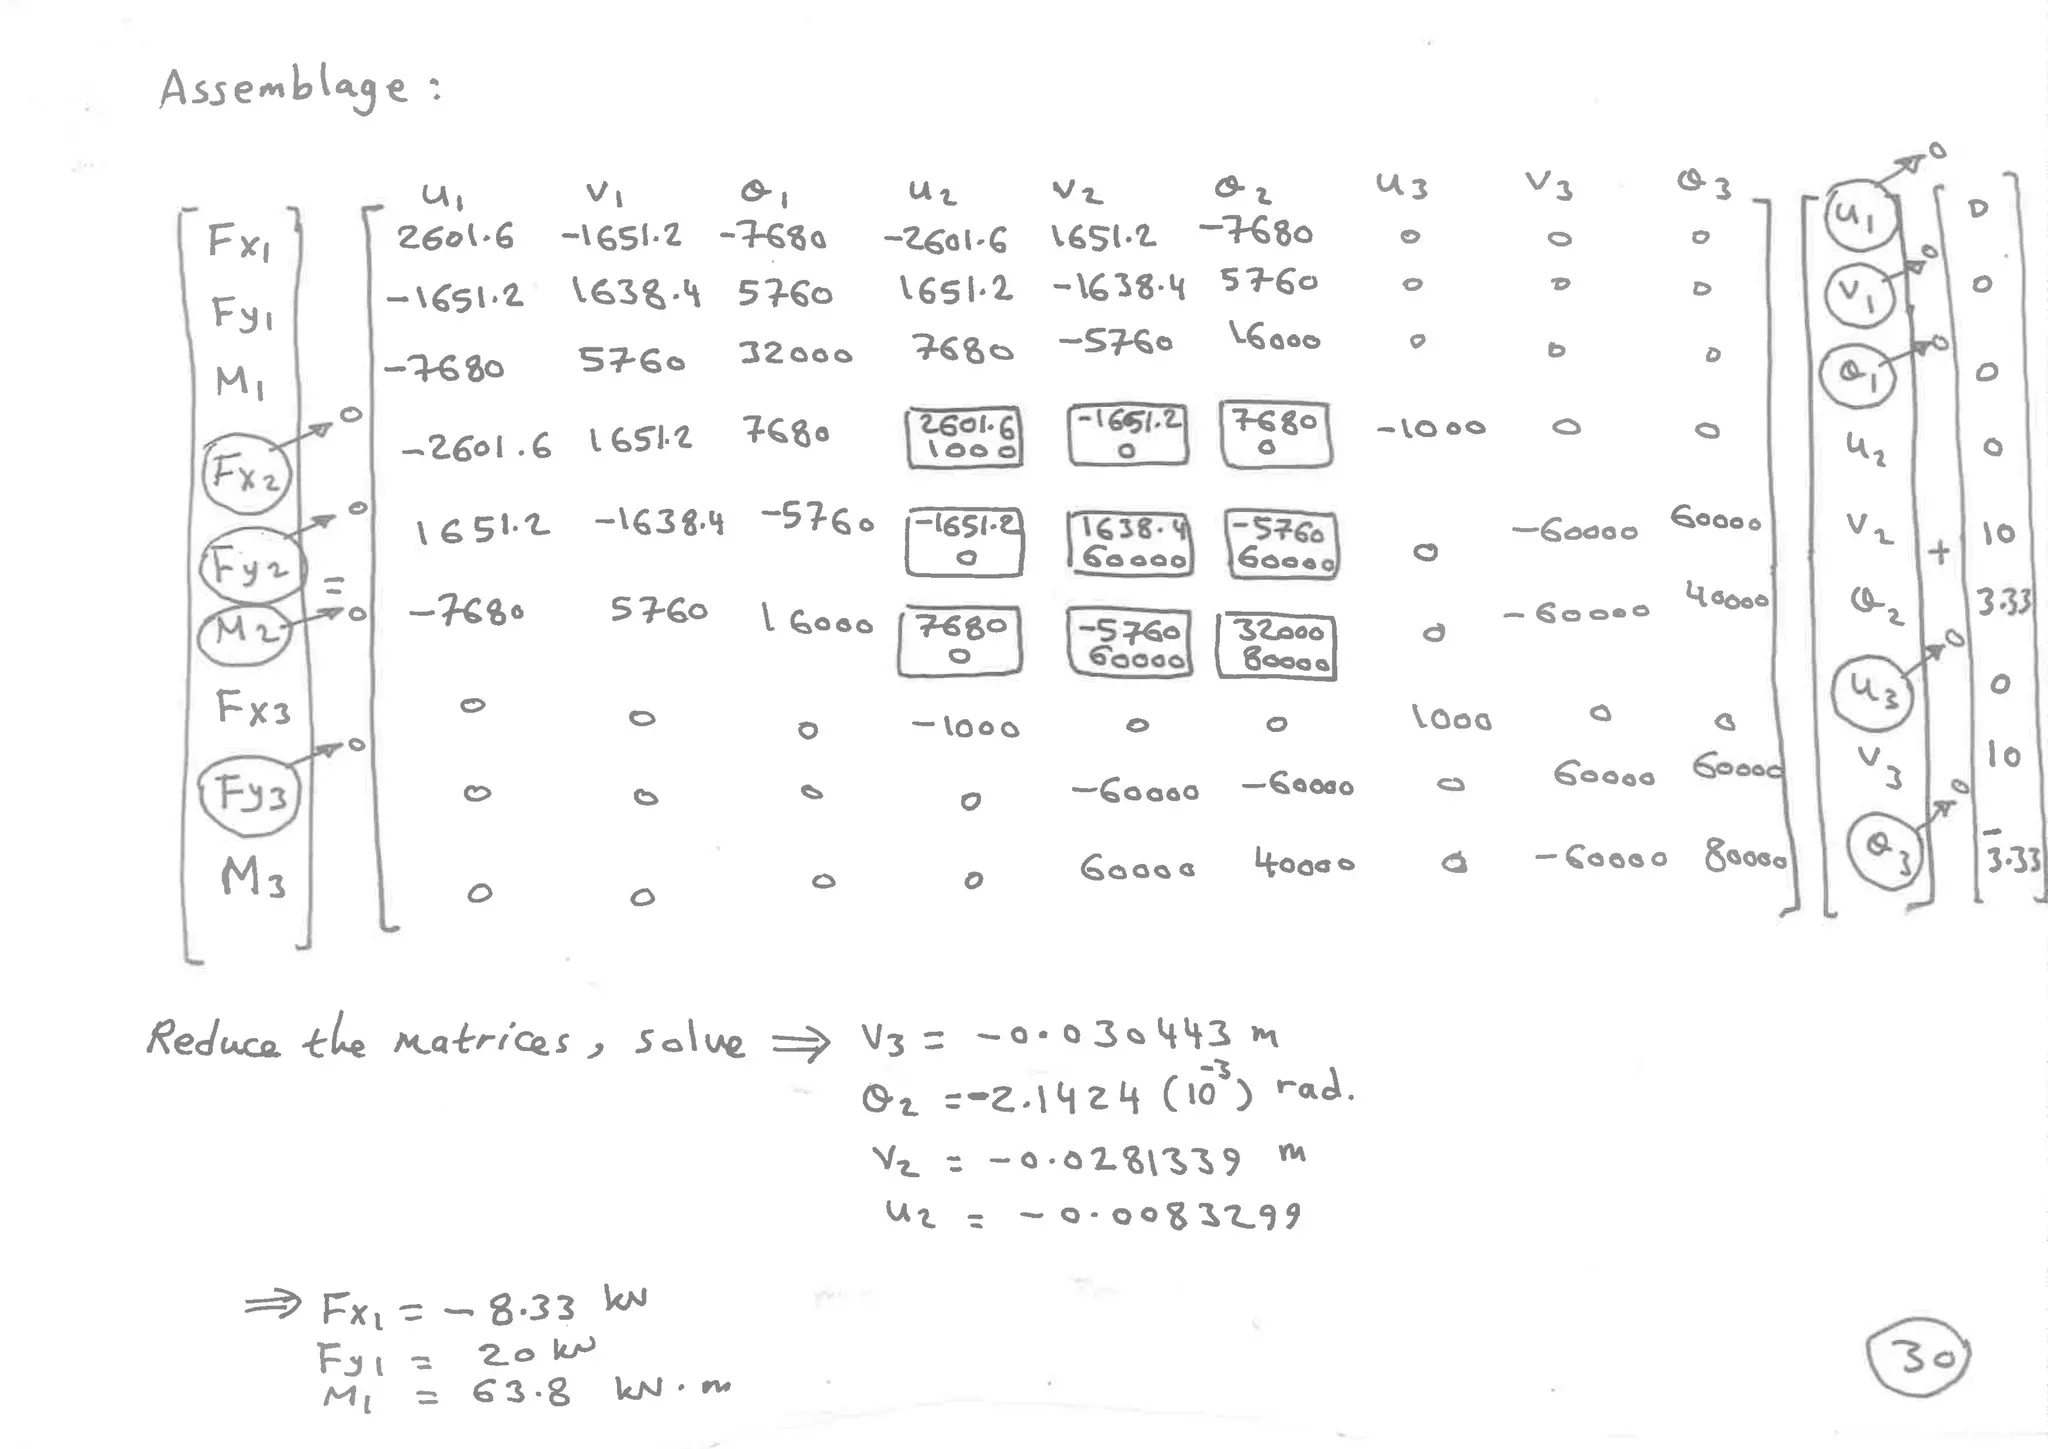 Assemblage :
u1 v1 θ1 u2 v2 θ2 u3 v3 θ3
Fx1 2601.6 -1651.2 -7680 -2601.6 1651.2 -7680 0 0 0 u1 → 0 0
Fy1 -1651.2 1638.4 5760 1651.2 -1638.4 5760 0 0 0 v1 → 0 0
M1 -7680 5760 32000 7680 -5760 16000 0 0 0 θ1 → 0 0
Fx2 → 0 -2601.6 1651.2 7680 2601.6 -1651.2 7680 -1000 0 0 u2 0
1000 0 0
Fy2 → 0 = 1651.2 -1638.4 -5760 -1651.2 1638.4 -5760 0 -60000 60000 v2 + 10
0 60000 60000
M2 → 0 -7680 5760 16000 7680 -5760 32000 0 -60000 40000 θ2 3.33
0 60000 80000
Fx3 0 0 0 -1000 0 0 1000 0 0 u3 → 0 0
Fy3 → 0 0 0 0 0 -60000 -60000 0 60000 60000 v3 10
M3 0 0 0 0 60000 40000 0 -60000 80000 θ3 → 0 -3.33
Reduce the matrices, solve ⇒ v3 = -0.030443 m
θ2 = -2.1424 (10^-3) rad.
v2 = -0.0281339 m
u2 = -0.0083299
⇒ Fx1 = -8.33 kN
Fy1 = 20 kN
M1 = 63.8 kN.m
30